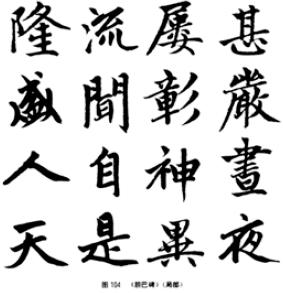 甚嚴晝夜
屢彰神異
流聞自是
隆盛人天
图 104 《胆巴碑》(局部)